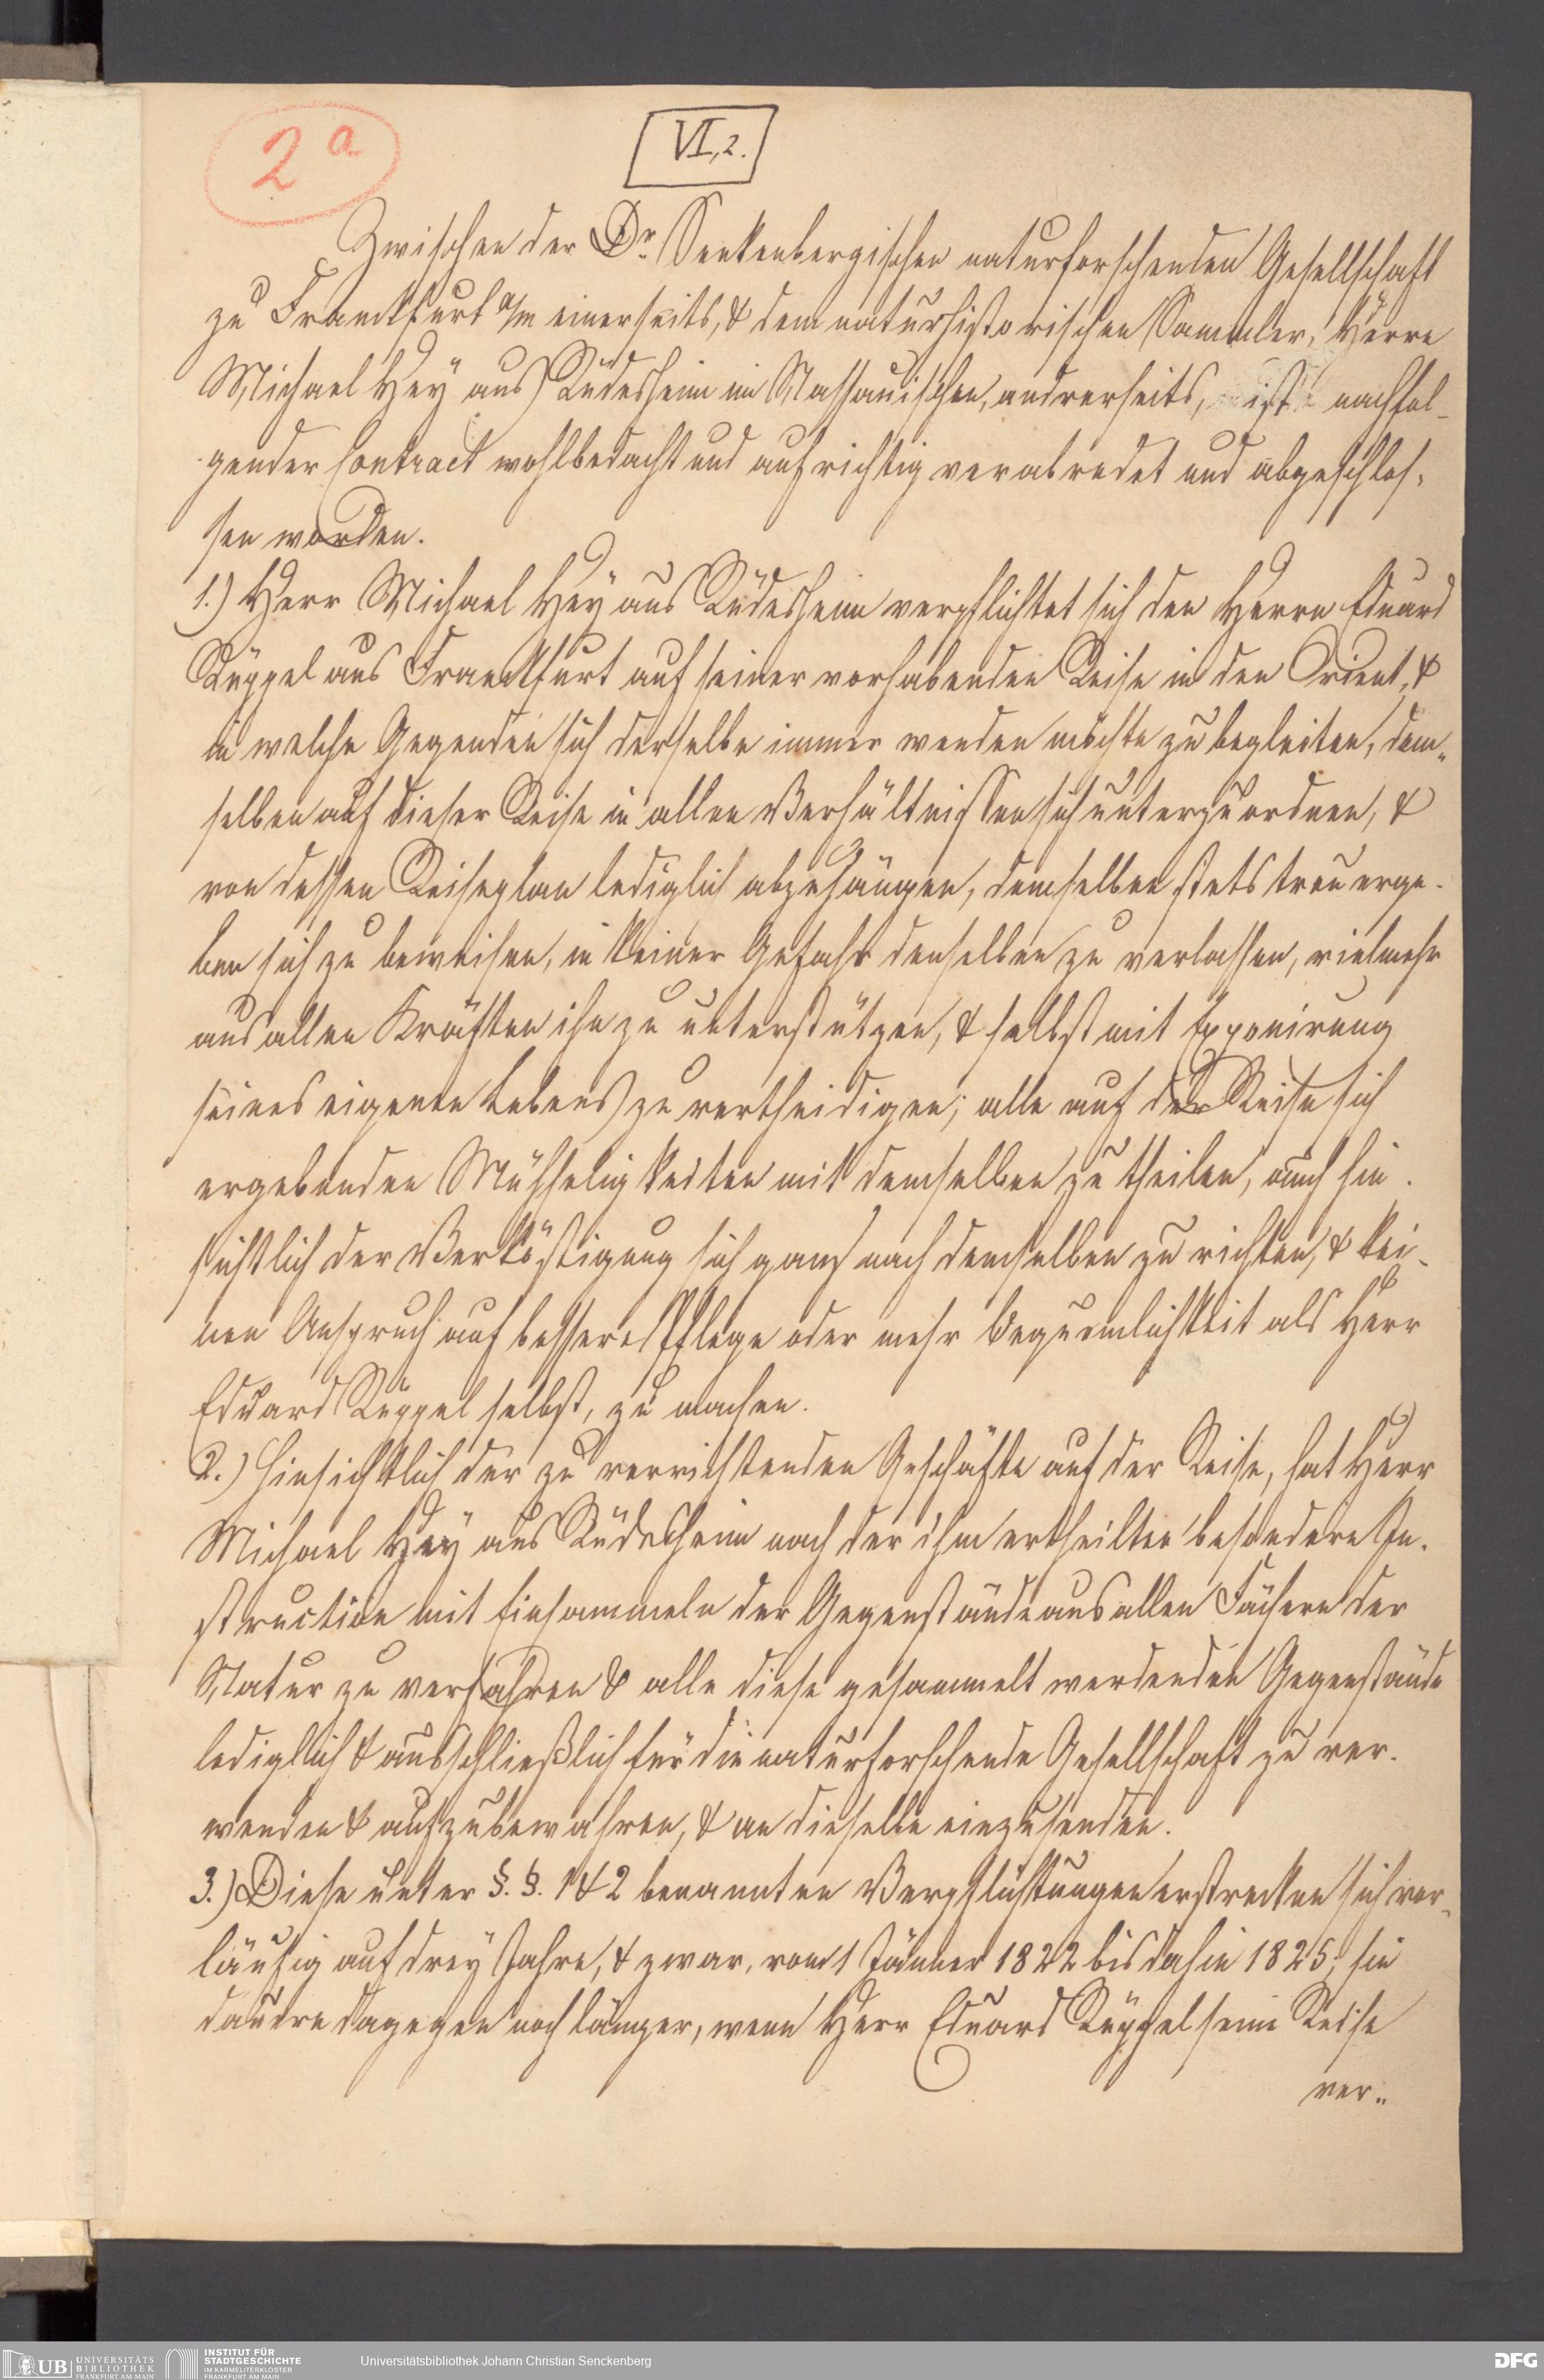 2a
VI,2.
Zwischen der Dr. Senkenbergischen naturforschenden Gesellschaft
zu Frankfurt a/m einerseits, & dem naturhistorischen Sammler, Herrn
Michael Hey aus Rüdesheim im Nassauischen, andrerseits, ist nachfol-
gender Contract wohlbedacht und aufrichtig verabredet und abgeschlos-
sen worden.
1.) Herr Michael Hey aus Rüdesheim verpflichtet sich den Herrn Eduard
Rüppel aus Frankfurt auf seiner vorhabenden Reise in den Orient, &
in welche Gegenden sich derselbe immer wenden möchte zu begleiten, dem-
selben auf dieser Reise in allen Verhältnissen sich unterzuordnen, &
von dessen Reiseplan lediglich abzuhängen, demselben stets treu erge-
ben sich zu beweisen, in keiner Gefahr denselben zu verlassen, vielmehr
aus allen Kräften ihn zu unterstützen, & selbst mit Exponirung
seines eigenen Lebens zu vertheidigen; alle auf der Reise sich
ergebenden Mühseligkeiten mit demselben zu theilen, auch hin-
sichtlich der Verköstigung sich ganz nach demselben zu richten, & kei-
nen Anspruch auf bessere Pflege oder mehr Bequemlichkeit als Herr
Eduard Rüppel selbst, zu machen.
2.) Hinsichtlich der zu verrichtenden Geschäfte auf der Reise, hat Herr
Michael Hey aus Rüdesheim nach der ihm ertheilten besondern In-
struction mit Einsammeln der Gegenstände aus allen Fächern der
Natur zu verfahren & alle diese gesammelt werdenden Gegenstände
lediglich & ausschließlich für die naturforschende Gesellschaft zu ver-
wenden & aufzubewahren, & an dieselbe einzusenden.
3.) Diese unter §. §. 1 & 2 benannten Verpflichtungen erstrecken sich vor-
läufig auf drey Jahre, & zwar, vom 1 Jänner 1822 bis dahin 1825; sie
dauern dagegen noch länger, wenn Herr Eduard Rüppel seine Reise
ver-
UB UNIVERSITÄTS BIBLIOTHEK FRANKFURT AM MAIN
INSTITUT FÜR STADTGESCHICHTE IM KARMELITERKLOSTER FRANKFURT AM MAIN
Universitätsbibliothek Johann Christian Senckenberg
DFG